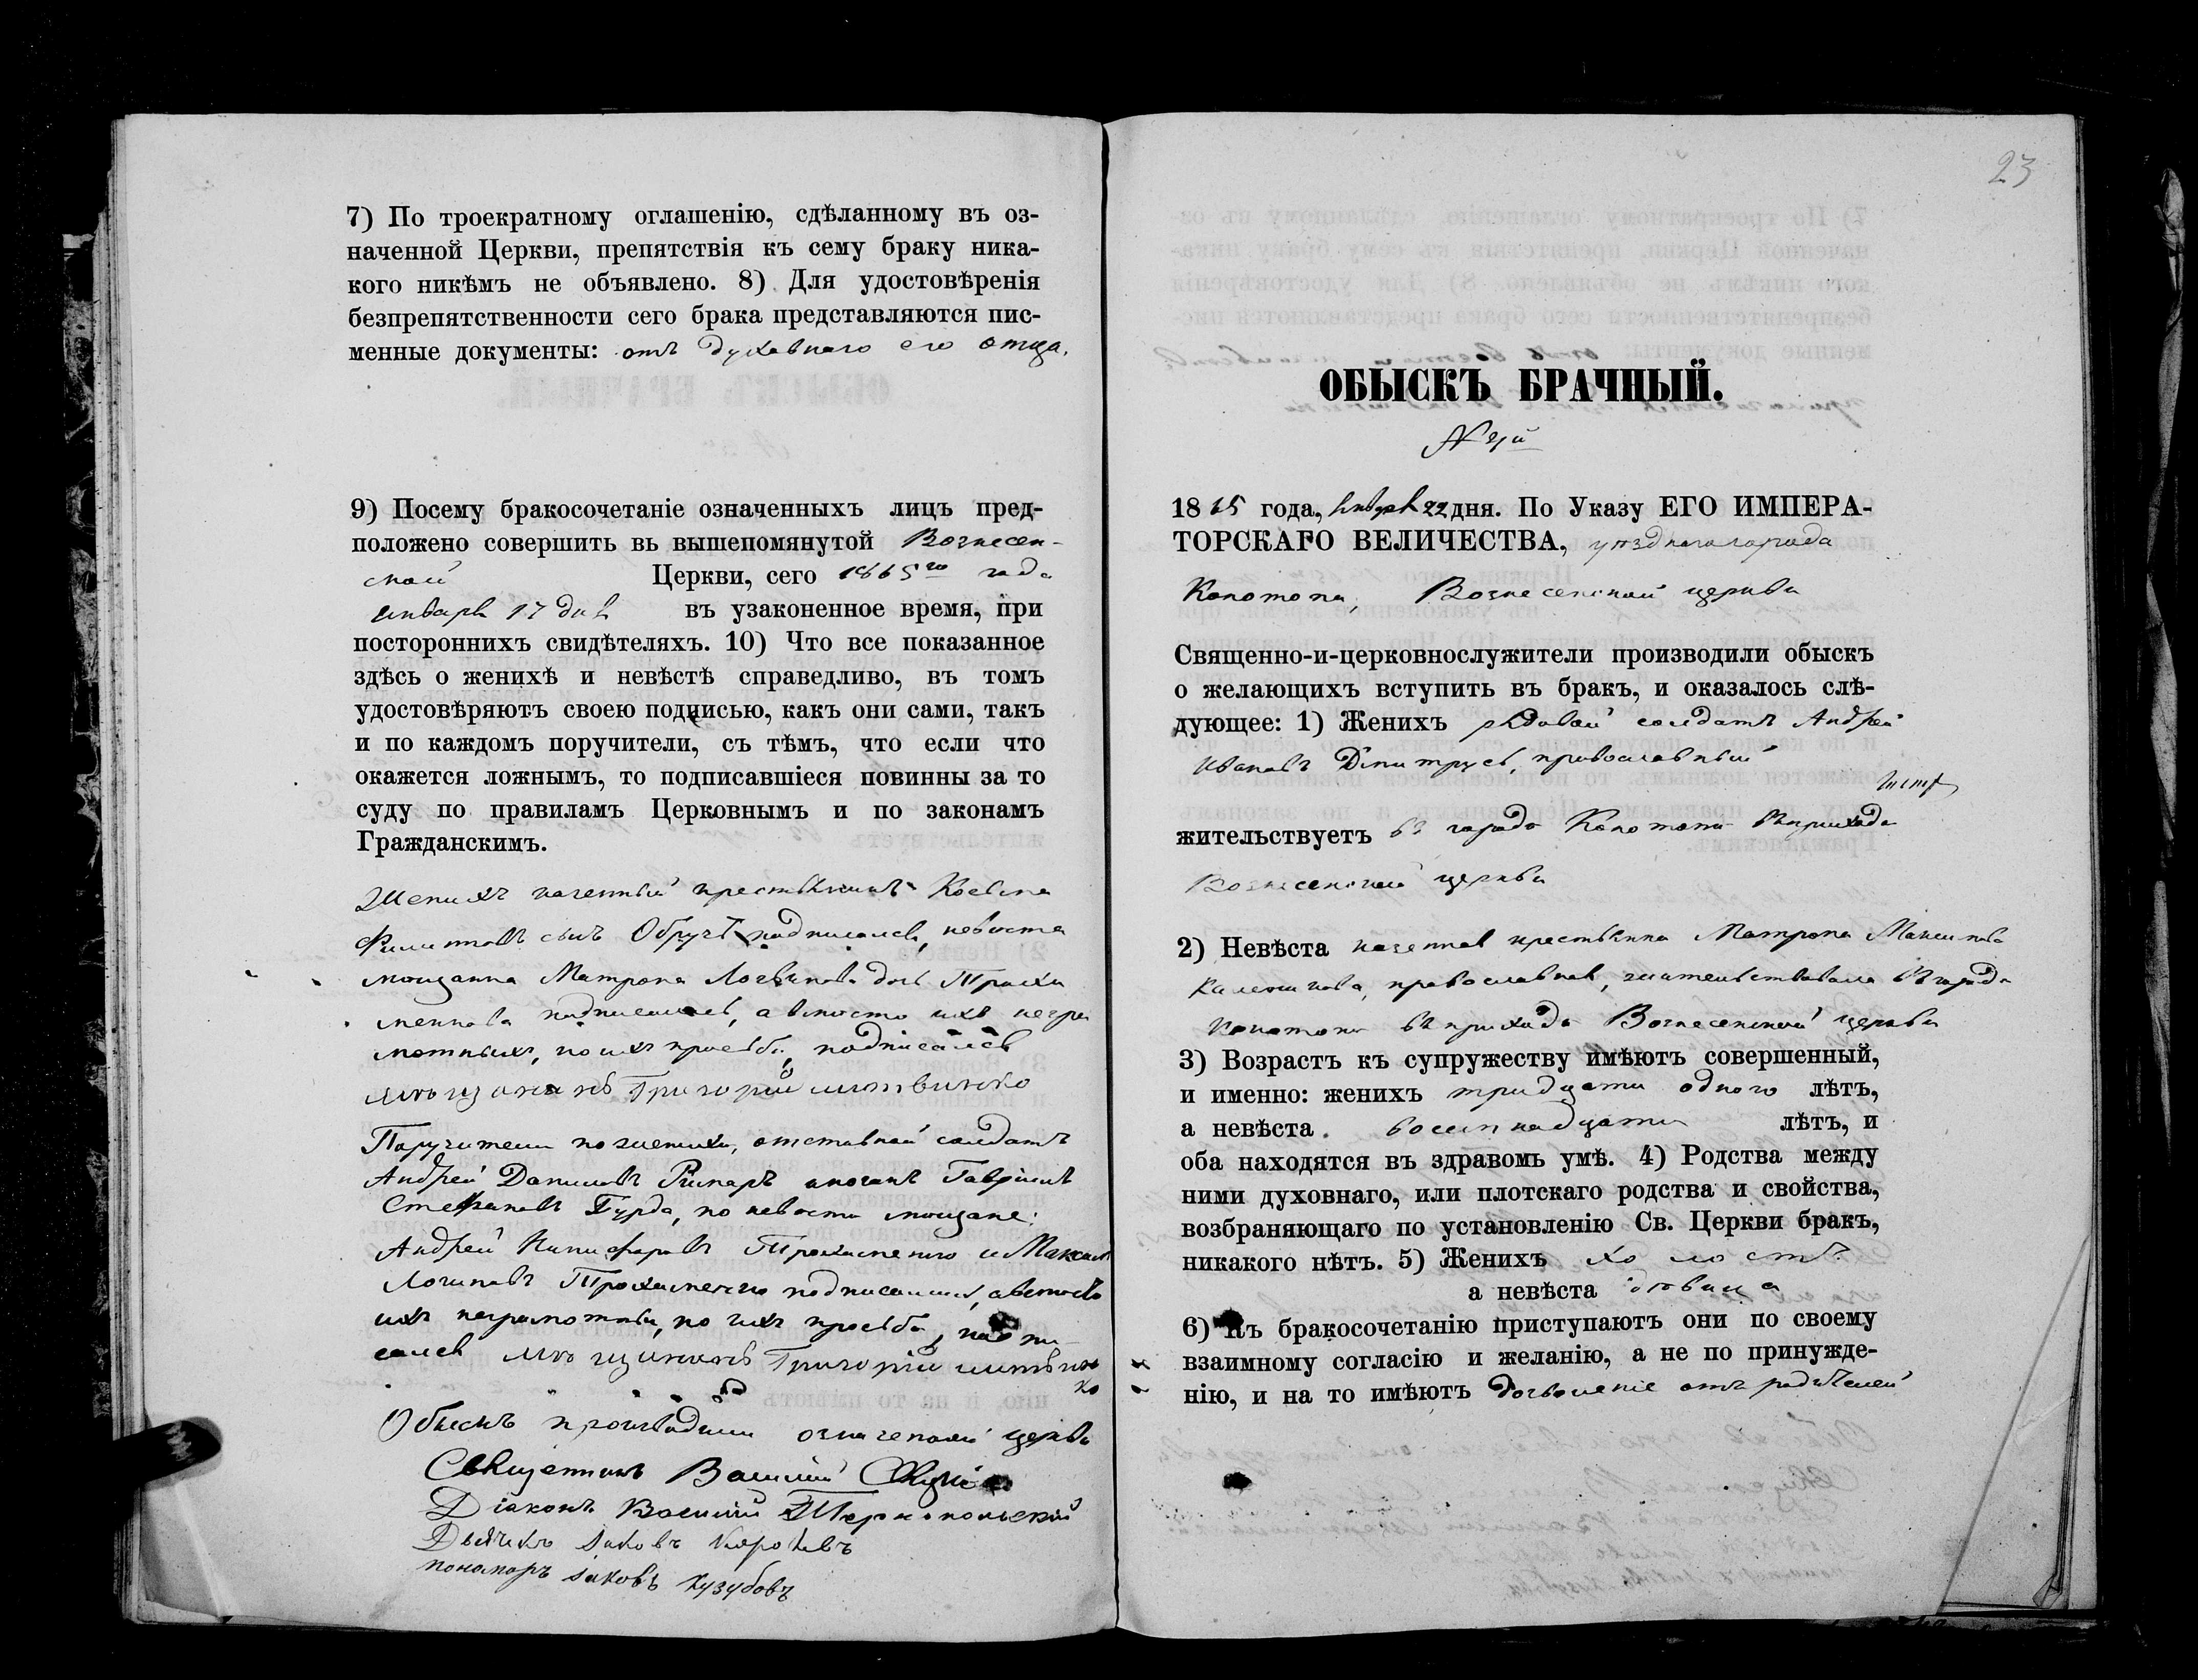 7) По троекратному оглашенію, сдѣланному въ оз-
наченной Церкви, препятствія къ сему браку ника-
кого никѣмъ не объявлено. 8) Для удостовѣренія
безпрепятственности сего брака представляются пис-
менные документы: отъ духовнаго его отца.
9) Посему бракосочетаніе означенныхъ лицъ пред-
положено совершить вь вышепомянутой Вознесен-
ской Церкви, сего 1865го года
января 17 дня въ узаконенное время, при
постороннихъ свидѣтеляхъ. 10) Что все показанное
здѣсь о женихѣ и невѣстѣ справедливо, въ томъ
удостовѣряютъ своею подписью, какъ они сами, такъ
и по каждомъ поручители, съ тѣмъ, что если что
окажется ложнымъ, то подписавшіеся повинны за то
суду по правиламъ Церковнымъ и по законамъ
Гражданскимъ.
Женихъ казенный крестьянинъ
Филиповъ сынъ подписался, невѣста
мѣщанка Матрона дочь
подписалась, а вмѣсто ихъ негра
мотныхъ, по ихъ прозьбѣ, подписался
мѣщанинъ Григорій Литвинко
Поручители по женихѣ, отставной солдатъ
Андрей Даниловъ Гавріилъ
Стефановъ Бурда, по невѣстѣ мѣщане:
Андрей Никифоровъ Трохименко и Максимъ
Логиновъ Трохименко подписались, а вмѣсто
ихъ неграмотныхъ, по ихъ прозьбѣ, подпи-
сался мѣщанинъ Григорій Литвин
ко
Обыскъ производили означенной церкви
Священникъ Василій
Діаконъ Василій Тернопольскій
Дьячекъ Іаковъ
пономарь Іаковъ Кузубовъ
23
ОБЫСКЪ БРАЧНЫЙ.
1865 года, Января 22 дня. По Указу ЕГО ИМПЕРА-
ТОРСКАГО ВЕЛИЧЕСТВА, уѣзднаго города
Конотопа, Вознесенской церкви
Священно-и-церковнослужители производили обыскъ
о желающихъ вступить въ бракъ, и оказалось слѣ-
дующее: 1) Женихъ рядовой солдатъ Андрей
Ивановъ православный
жительствуетъ въ городѣ Конотопѣ въ приходѣ
Вознесенской церкви
2) Невѣста казенная крестьянка Матрона
православная, жительствовала въ городѣ
Конотопѣ въ приходѣ Вознесенской церкви
3) Возрастъ къ супружеству имѣютъ совершенный,
и именно: женихъ тридцати одного лѣтъ,
а невѣста восемнадцати лѣтъ, и
оба находятся въ здравомь умѣ. 4) Родства между
ними духовнаго, или плотскаго родства и свойства,
возбраняющаго по установленію Св. Церкви бракъ,
никакого нѣтъ. 5) Женихъ холостъ
а невѣста дѣвица
6) Къ бракосочетанію приступаютъ они по своему
взаимному согласію и желанію, а не по принужде-
нію, и на то имѣютъ дозволеніе отъ родителей